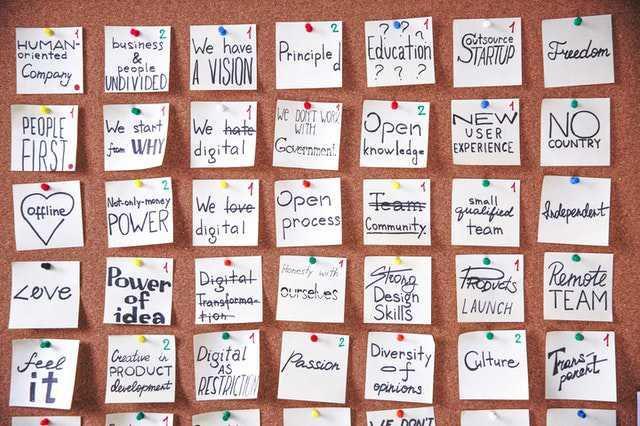 HUMAN-
oriented
Company
2
business
&
people
UNDIVIDED
1
We have
A VISION
2
Principled
2
? ? ?
Education
? ? ?
1
Outsource
STARTUP
Freedom
PEOPLE
FIRST.
2
We start
from WHY
We hate
digital
1
We DON'T WORK
WITH
Government
2
Open
knowledge
1
NEW
USER
EXPERIENCE
NO
COUNTRY
offline
2
Not-only-money
POWER
1
We love
digital
1
Open
process
1
Team
Community
1
small
qualified
team
Independent
LOVE
Power
of
idea
Digital
Transforma-
tion
1
Honesty with
ourselves
Strong
Design
Skills
1
Products
LAUNCH
Remote
TEAM
feel
it
2
Creative in
PRODUCT
development
1
Digital
AS
RESTRICTION
2
Passion
Diversity
of
opinions
2
Culture
1
Trans
parent
WE DON'T